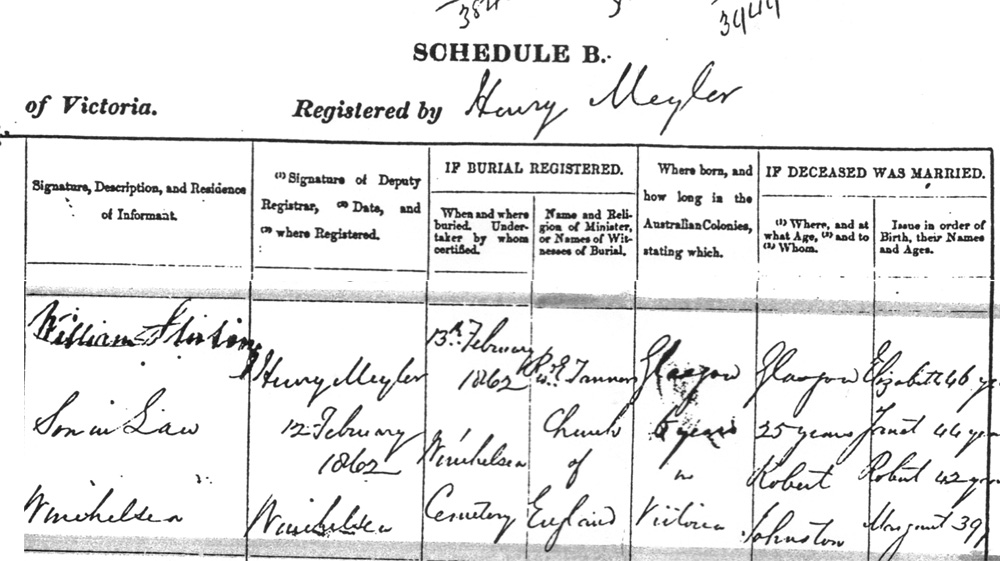 384
3944
SCHEDULE B.
of Victoria. Registered by Henry Meyler
Signature, Description, and Residence
of Informant.
(1) Signature of Deputy
Registrar, (2) Date, and
(3) where Registered.
IF BURIAL REGISTERED.
When and where
buried. Under-
taker by whom
certified.
Name and Reli-
gion of Minister,
or Names of Wit-
nesses of Burial.
Where born, and
how long in the
Australian Colonies,
stating which.
IF DECEASED WAS MARRIED.
(1) Where, and at
what Age, (2) and to
(3) Whom.
Issue in order of
Birth, their Names
and Ages.
William
Son in Law
Winchelsea
Henry Meyler
12 February
1862
Winchelsea
13th February
1862
Winchelsea
Cemetery
Tanner
Church
of
England
Glasgow
years
in
Victoria
Glasgow
25 years
Robert
Johnston
Elizabeth 46
Janet 44
Robert 42
Margaret 39